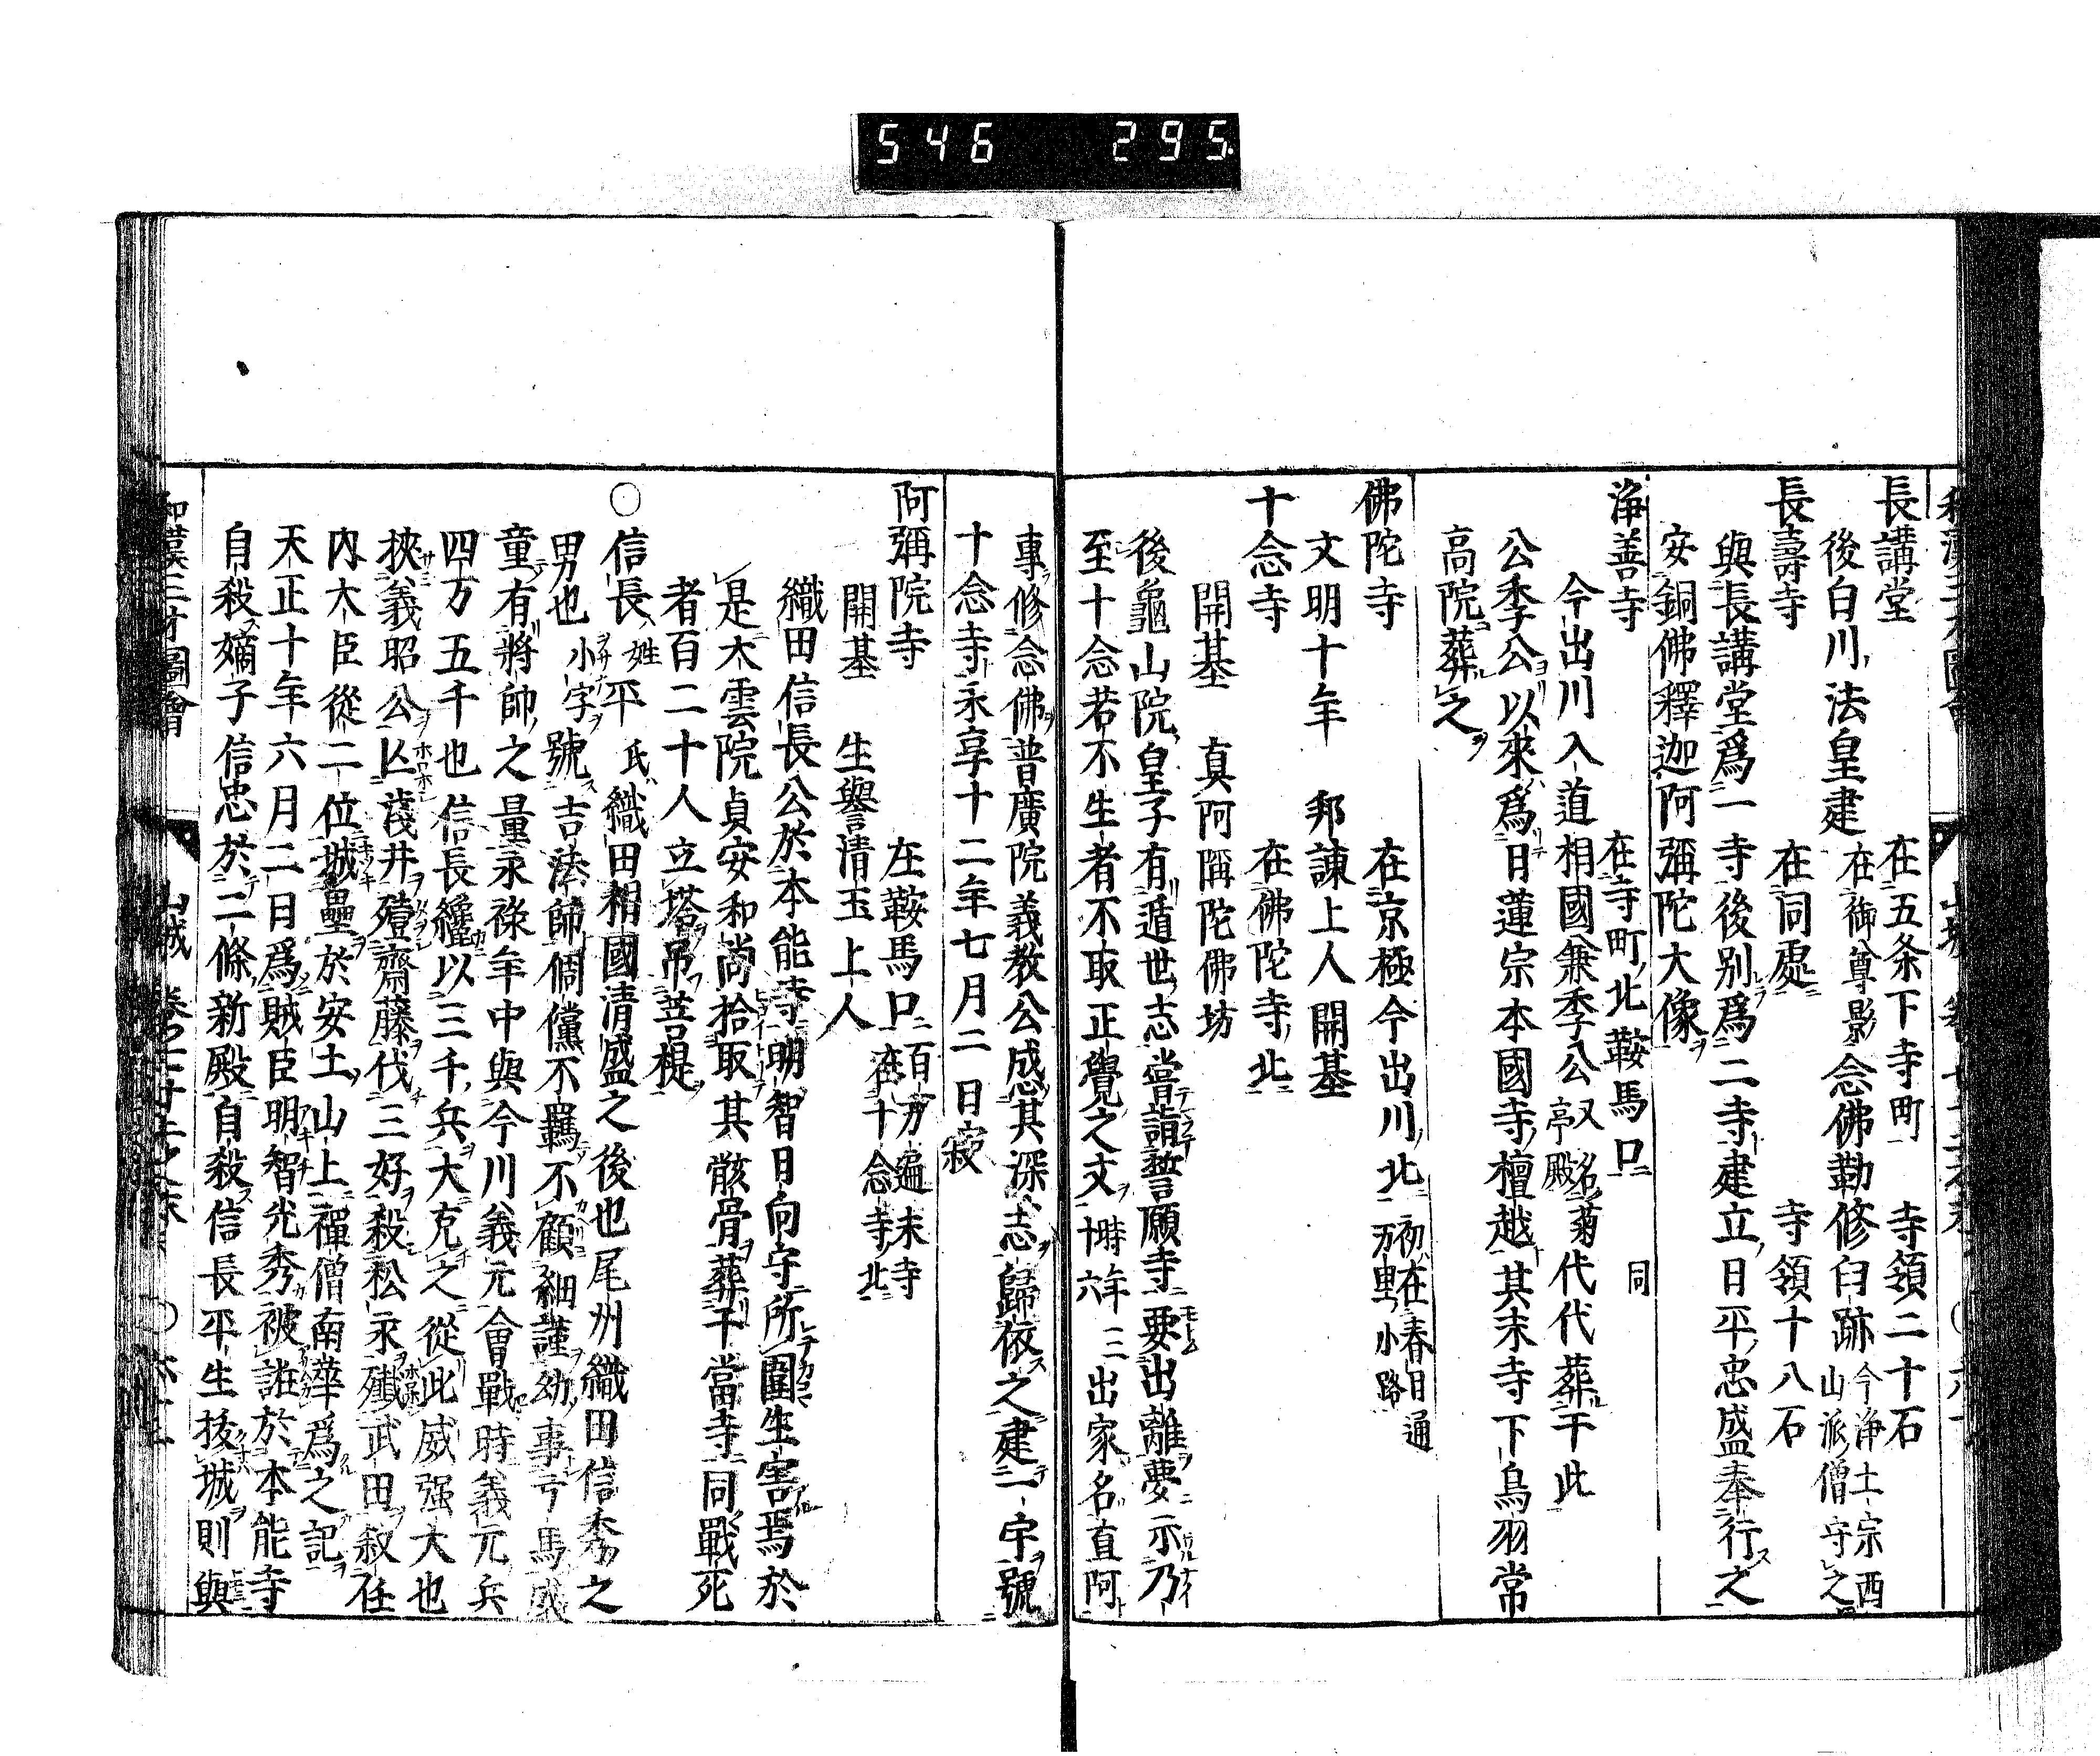 546 295
長講堂 在五条下寺町 寺領二十石
後白川法皇建 在御尊影 念佛勤修旧跡 今浄土宗西山派僧守之
長壽寺 在同處 寺領十八石
與長講堂爲一寺後别爲二寺建立日平忠盛奉行之
安銅佛釋迦阿彌陀大像
浄善寺 在寺町北鞍馬口 同
今出川入道相國兼季公又名菊亭殿代代葬于此
公季公以來爲日蓮宗本國寺檀越其末寺下鳥羽常
高院葬之
佛陀寺 在京極今出川北 初在春日通万里小路
文明十年 邦諫上人開基
十念寺 在佛陀寺北
開基 真阿彌陀佛坊
後龜山院皇子有遁世志嘗詣誓願寺要出離夢示乃
至十念若不生者不取正覺之文 時年十六 三出家名直阿
專修念佛普廣院義教公感其深志歸依之建一宇號
十念寺永享十二年七月二日寂
阿彌院寺 在鞍馬口 百万遍末寺在十念寺北
開基 生譽清玉上人
織田信長公於本能寺明智日向守所圍生害焉於
是大雲院貞安和尚拾取其骸骨葬于當寺同戰死
者百二十人立塔吊菩提
○信長 姓平 氏織田相國清盛之後也尾州織田信秀之
男也 小字號吉法師倜儻不羈不顧細謹幼事弓馬成
童有將帥之量永祿年中與今川義元會戰時義元兵
四万五千也信長纔以三千兵大克之從此威强大也
挾義昭公亡淺井殪齋藤伐三好殺松永殲武田叙任
内大臣從二位城壘於安土山上禪僧南華爲之記
天正十年六月二日爲賊臣明智光秀被誑於本能寺
自殺嫡子信忠於二條新殿自殺信長平生拔城則與
和漢三才圖會 山城